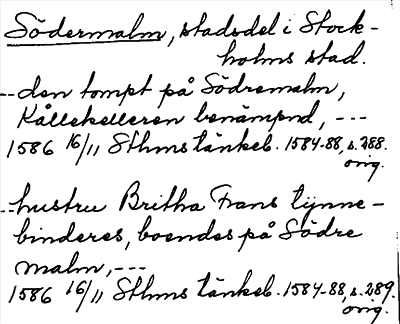 Södermalm, stadsdel i Stock-
holms stad.
--den tompt på Södremalm,
Kållekelleren benämpnd, ---
1586 16/11 Sthms tänkeb. 1584-88, s. 288.
orig.
--hustru Britha Frans tynne-
binderes, boendes på Södre
malm, ---
1586 16/11 Sthms tänkeb. 1584-88, s. 289.
orig.